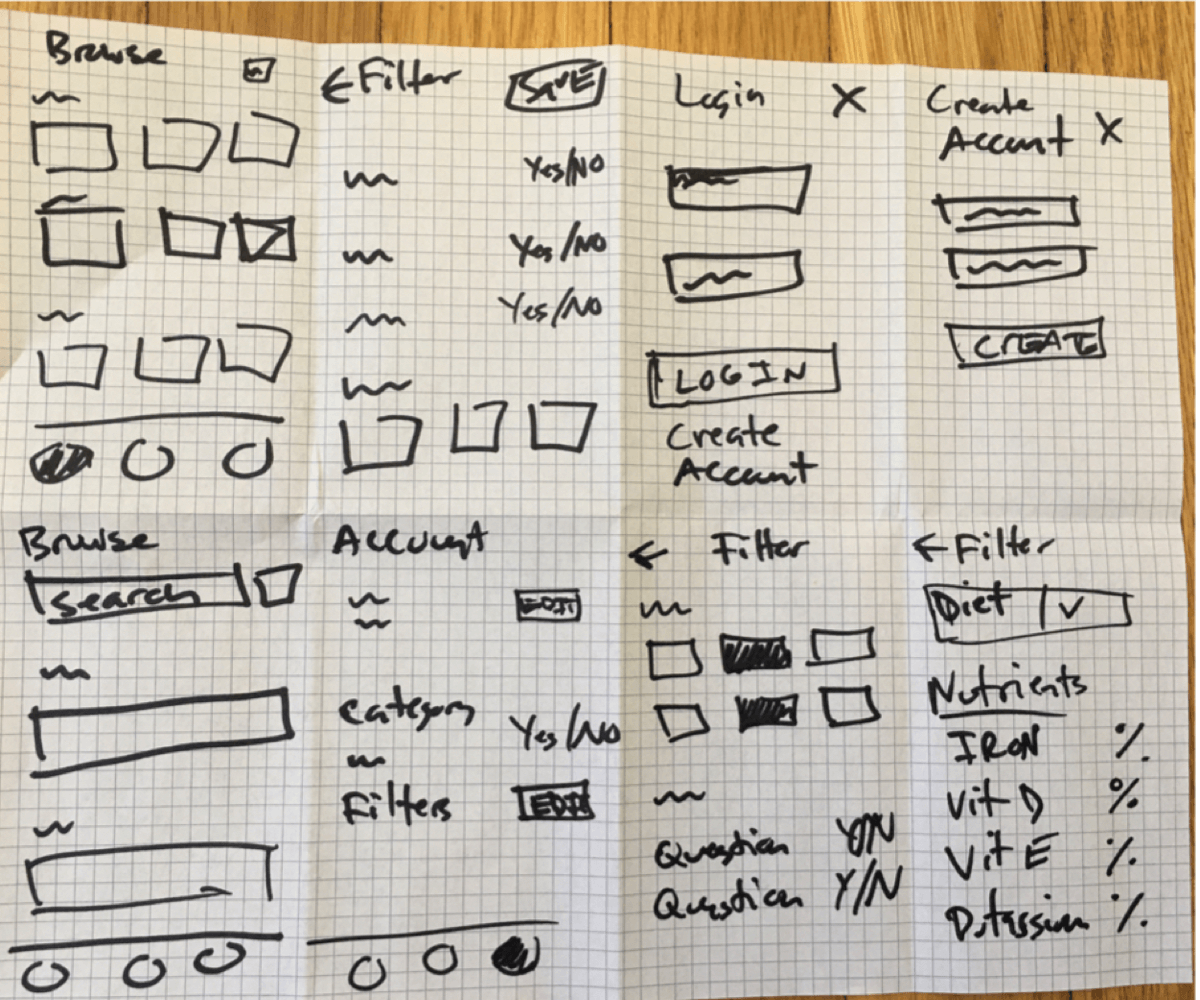 Browse
← Filter
SAVE
Yes/No
Yes/No
Yes/No
Login X
LOGIN
Create
Account
Create
Account X
CREATE
Browse
Search
Account
EDIT
Category
Yes/No
Filters
EDIT
← Filter
Question Y/N
Question Y/N
← Filter
Diet
Nutrients
IRON %
Vit D %
Vit E %
Potassium %